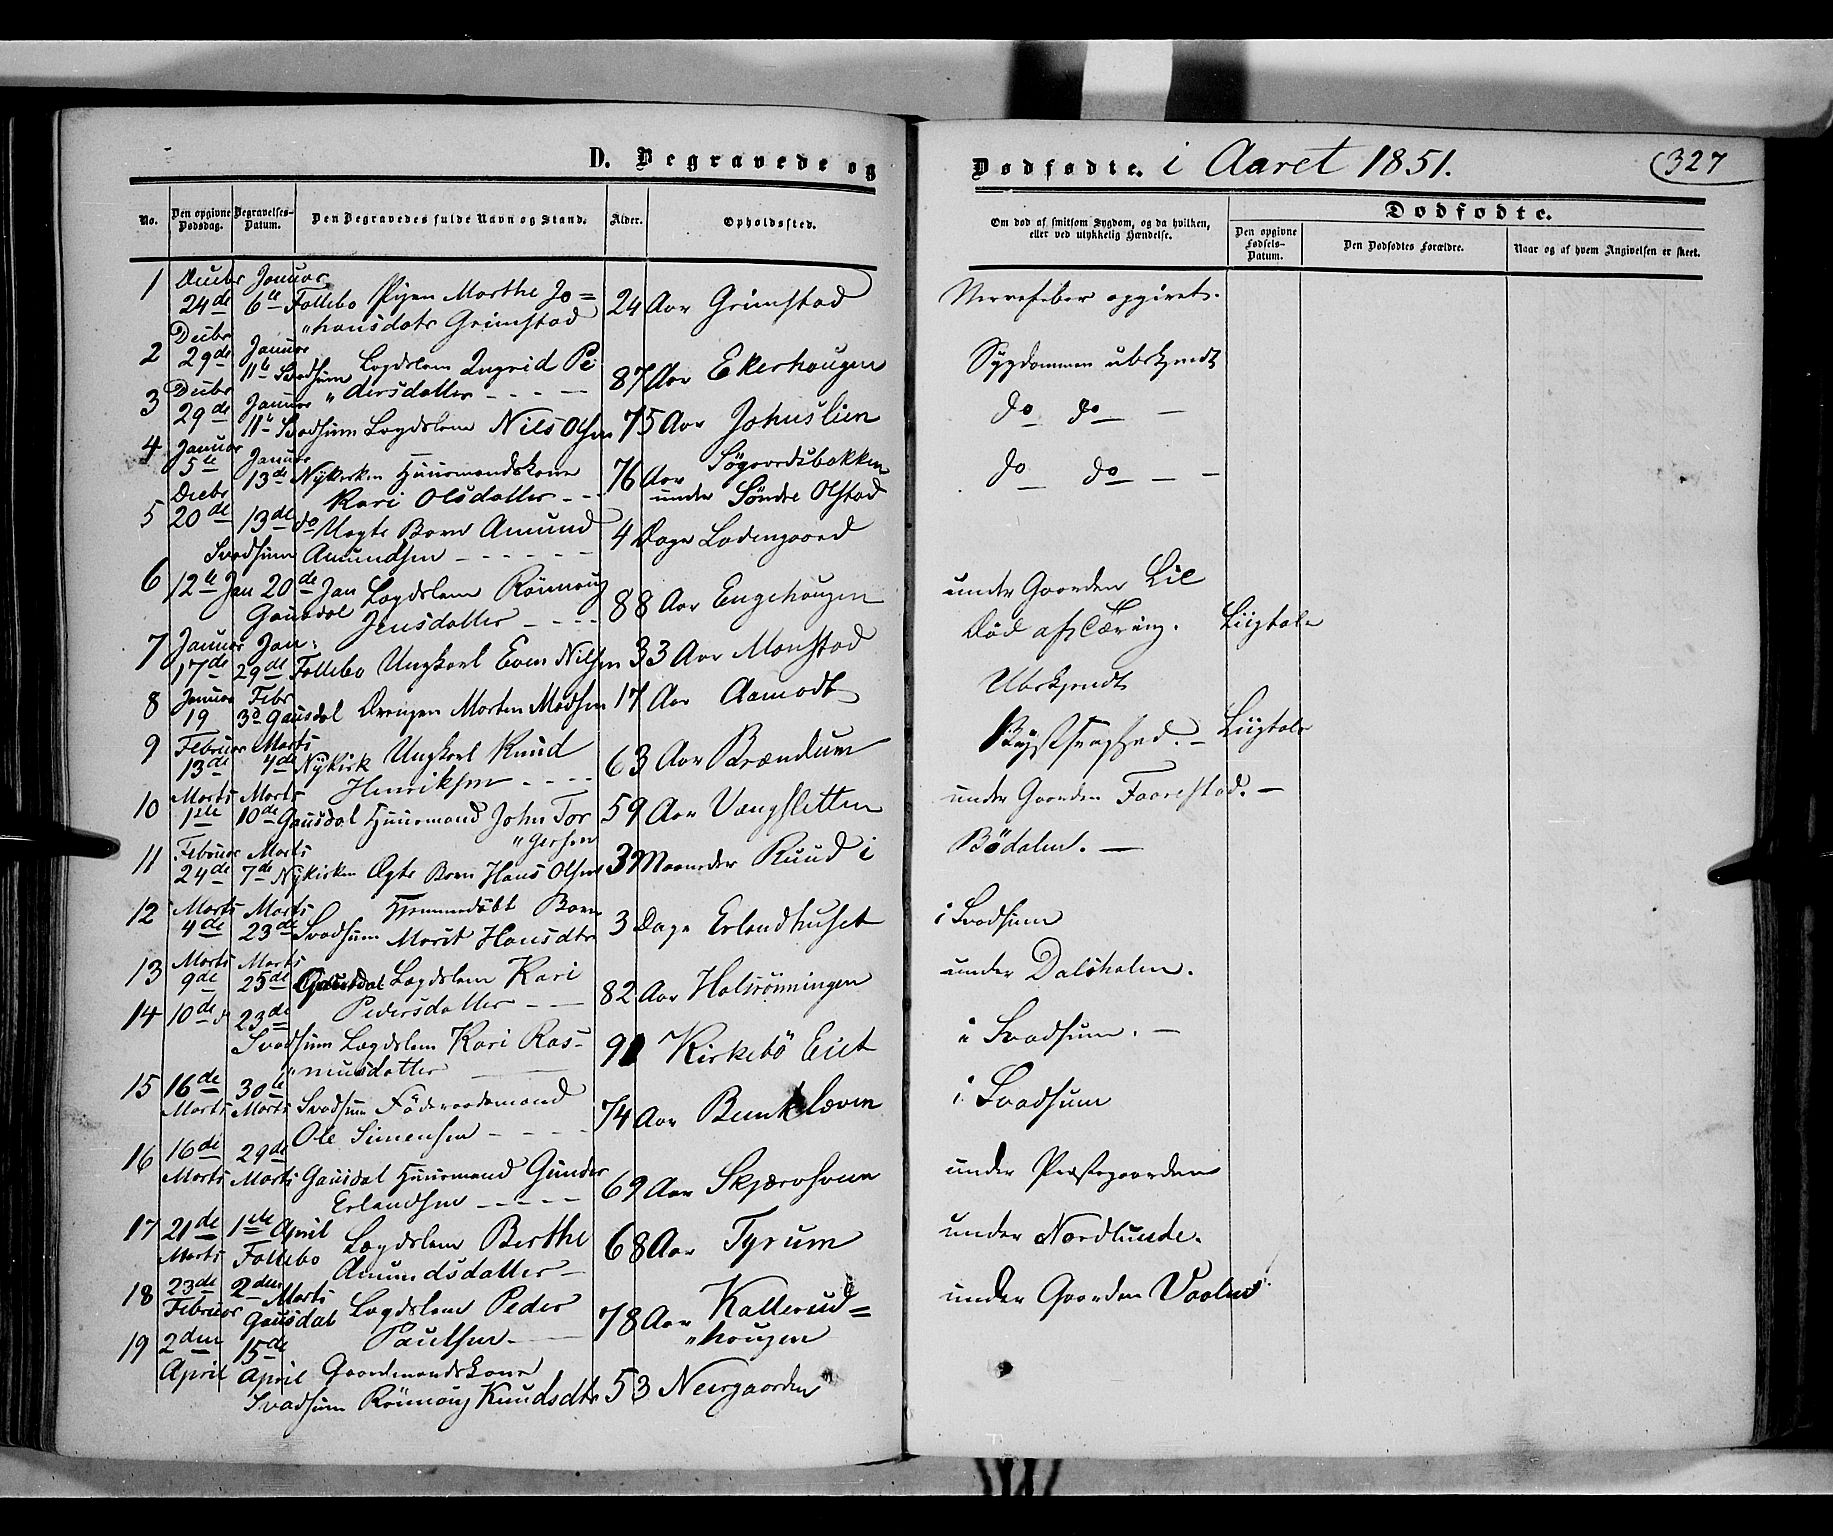 D. Begravede og Dødfødte. i Aaret 1851. 327
No. Den opgivne Dødsdag. Begravelses-Datum. Den Begravedes fulde Navn og Stand. Alder. Opholdssted. Om død af smitsom Sygdom, og da hvilken, eller ved ulykkelig Hændelse. Dødfødte.
Den opgivne Fødsels-Datum. Den Dødfødtes Forældre. Naar og af hvem Angivelsen er skeet.
1 Decbr Januar
24de 6te Follebo Pigen Marthe Jo= 24 Aar Grimstad Nervefeber opgivet.
"hansdatr Grimstad
2 Decbr Januar
29de 11te Svadsum Lægdslem Ingrid Pe 87 Aar Ekerhaugen Sygdommen ubekjendt
"dersdatter
3 Decbr Januar
29de 11te Svadsum Lægdslem Nils Olsen 75 Aar Johuslien do do
4 Januar Januar
5te 13de Nykirken Huusmandskone 76 Aar Søgaardsbakken do do
Kari Olsdatter under Søndre Olstad
5 Decbr
20de 13de do Uægte Barn Amund 4 Dage Ladengaard
Svadsum Amundsen
6 12te Jan 20de Jan Lægdslem Rönnoug 88 Aar Engehougen under Gaarden Lie
Gausdal Jensdatter
7 Januar Jan:
17de 29de Follebo Ungkarl Even Nilsen 33 Aar Monstad Död af Tæring. Liigtale
8 Januar Febr
19 3de Gausdal Drengen Morten Madsen 17 Aar Aamodt Ubekjendt
9 Februar Marts
13de 7de Nykirk Ungkarl Knud 63 Aar Brændum Brystsyghed. Liigtale
Henriksen
10 Marts Marts
1ste 10de Gausdal Huusmand John Tor 59 Aar Vangsletten under Gaarden Faarestad.
"gersen
11 Februar Marts
24de 7de Nykirken Ægte Barn Hans Olsen 3 Maaneder Ruud i Bødalen.
12 Marts Marts
4de 23de Svadsum Hjemmedøbt Barn 3 Dage Erlandhuset i Svadsum
Marit Hansdtr
13 Marts Marts
9de 25de Gausdal Lægdslem Kari 82 Aar Holsrönningen under Dalshølen.
Pedersdatter
14 10de d 23de
Svadsum Lægdslem Kari Ras- Kirkebö Eiet i Svadsum.
"musdatter
15 16de 30te
Marts Marts Svadsum Föderaadsmand 74 Aar i Svadsum
Ole Simensen
16 16de 29de
Marts Marts Gausdal Huusmand Gunder 69 Aar Skjærvhven under Præstegaarden
Erlandsen
17 21de 1ste April Lægdslem Berthe 68 Aar Tyrum under Nordlunde.
Marts Follebo Amundsdatter
18 23de 2den Marts
Februar Gausdal Lægdslem Peder 78 Aar Kallerud= under Gaarden
Paulsen "hougen
19 2den 15de
April April Gaardmandskone
Svadsum Rönnoug Knudsdtr 53 Neergaarden